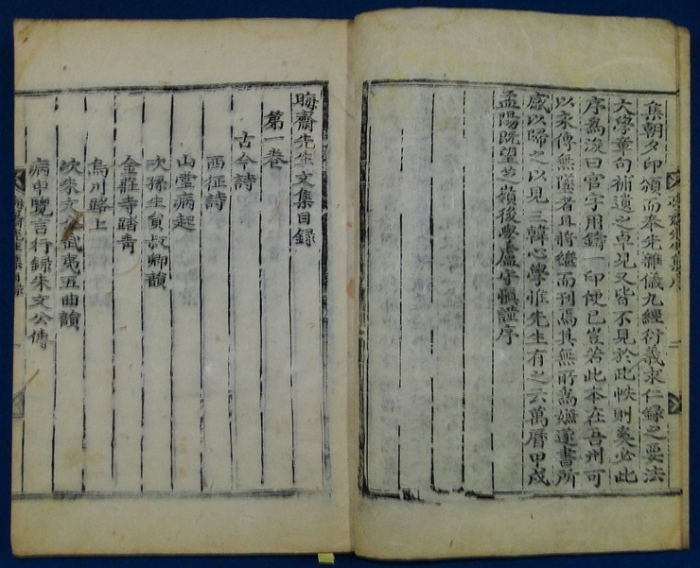 集朝夕印頒而奉先雜儀九經衍義求仁錄之要法
大學章句補遺之卓見又皆不見於此帙則奚必此
序爲浚曰官字用鑄一印便已豈若此本在吾州可
以永傳無墜者且將繼而刊焉其無所爲嫌遂書所
感以歸之以見三韓心學惟先生有之云萬曆甲戌
孟陽旣望 嶺後學盧守愼謹序
晦齋先生文集目錄
第一卷
古今詩
西征詩
山堂病起
次孫生 叔卿韻
金 寺踏青
烏川路上
次朱文公武夷五曲韻
病中覽言行錄朱文公傳